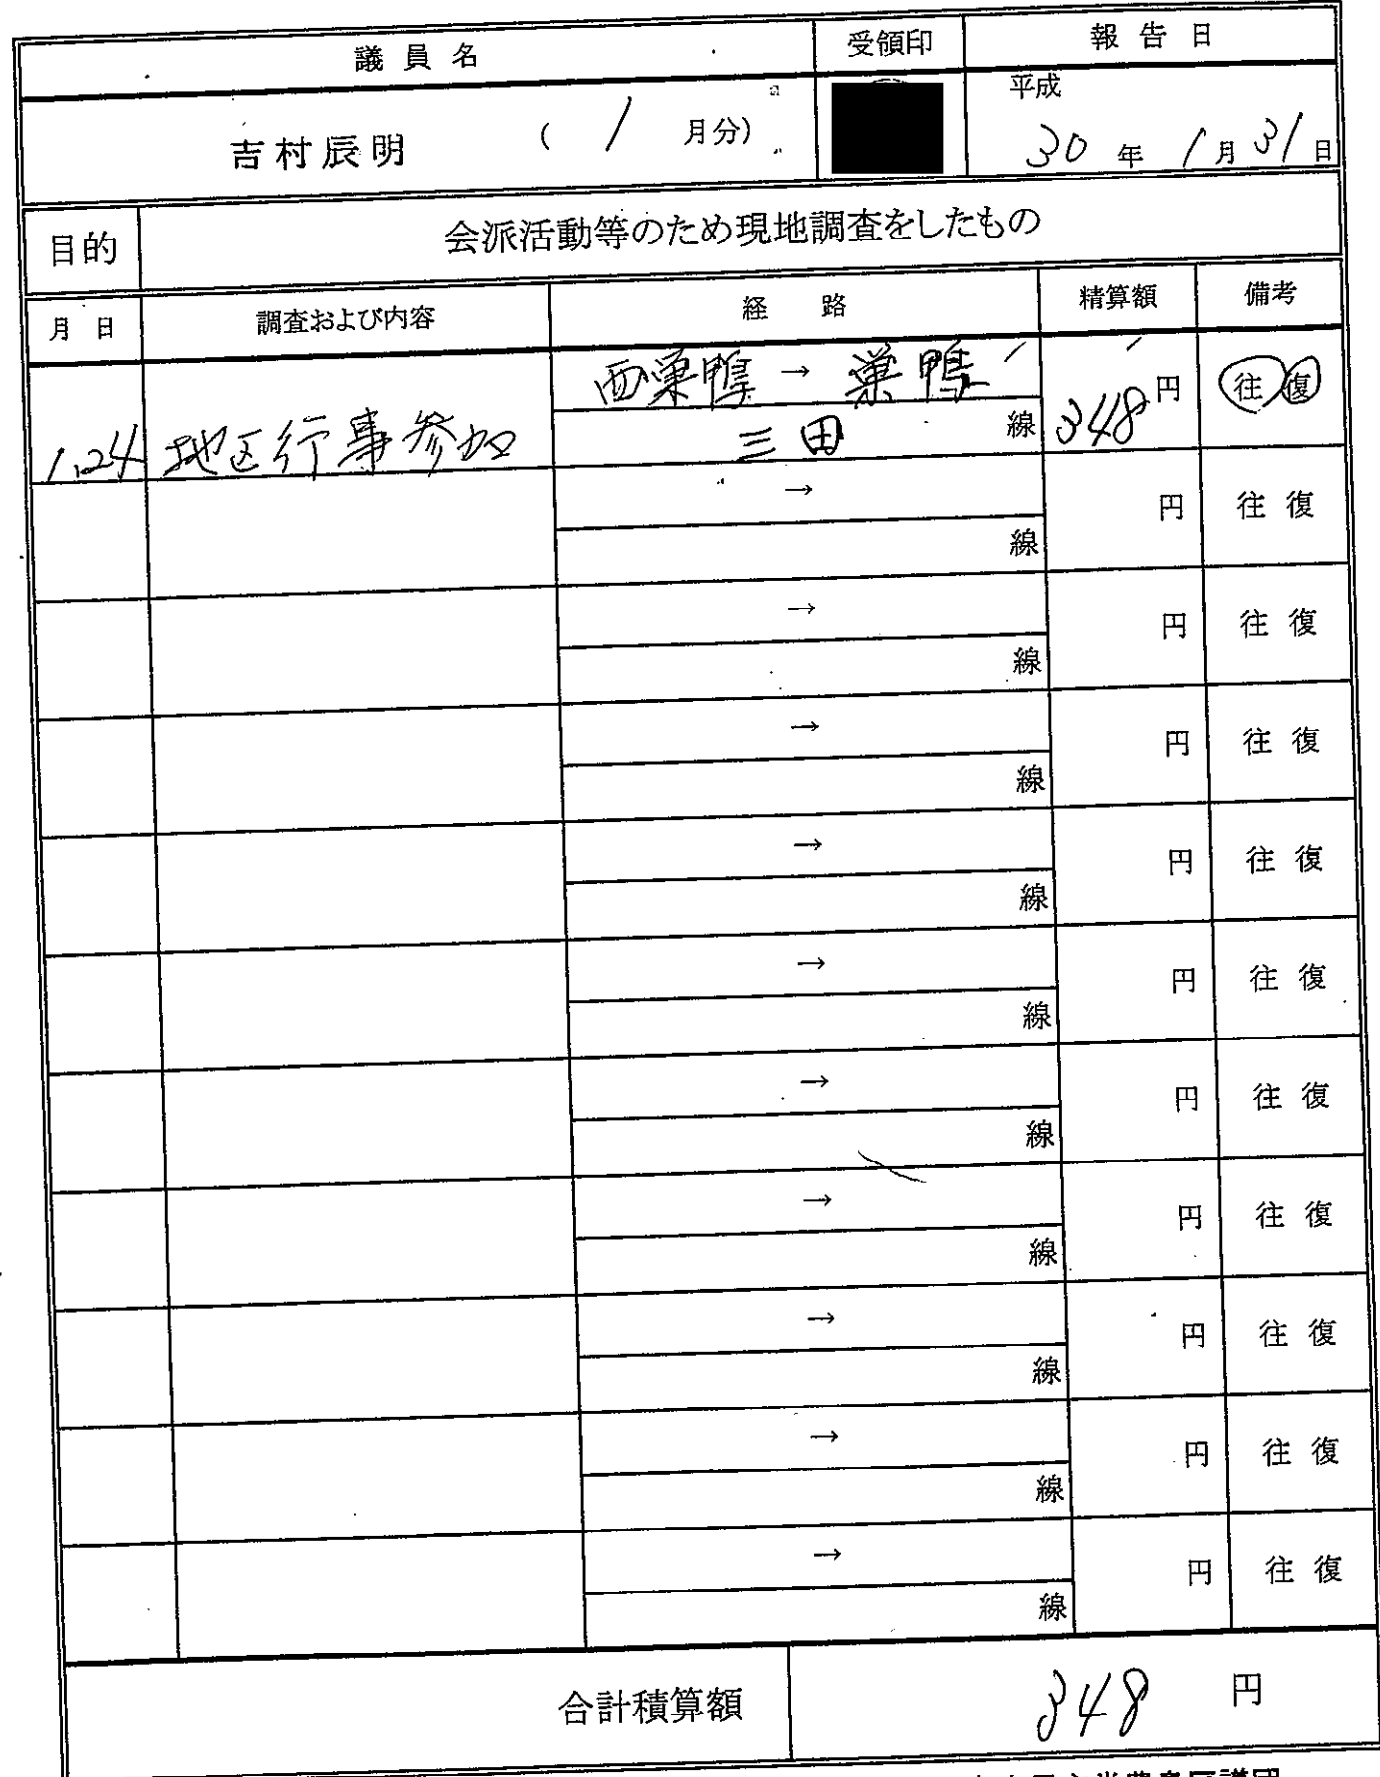 議員名 受領印 報告日
吉村辰明 ( 1 月分) 平成
30 年 1 月 31 日
目的 会派活動等のため現地調査をしたもの
月 日 調査および内容 経 路 精算額 備考
1.24 地区行事参加 西巣鴨 → 巣鴨 348 円 往 復
三田 線
→ 円 往 復
線
→ 円 往 復
線
→ 円 往 復
線
→ 円 往 復
線
→ 円 往 復
線
→ 円 往 復
線
→ 円 往 復
線
→ 円 往 復
線
→ 円 往 復
線
→ 円 往 復
線
合計積算額 348 円